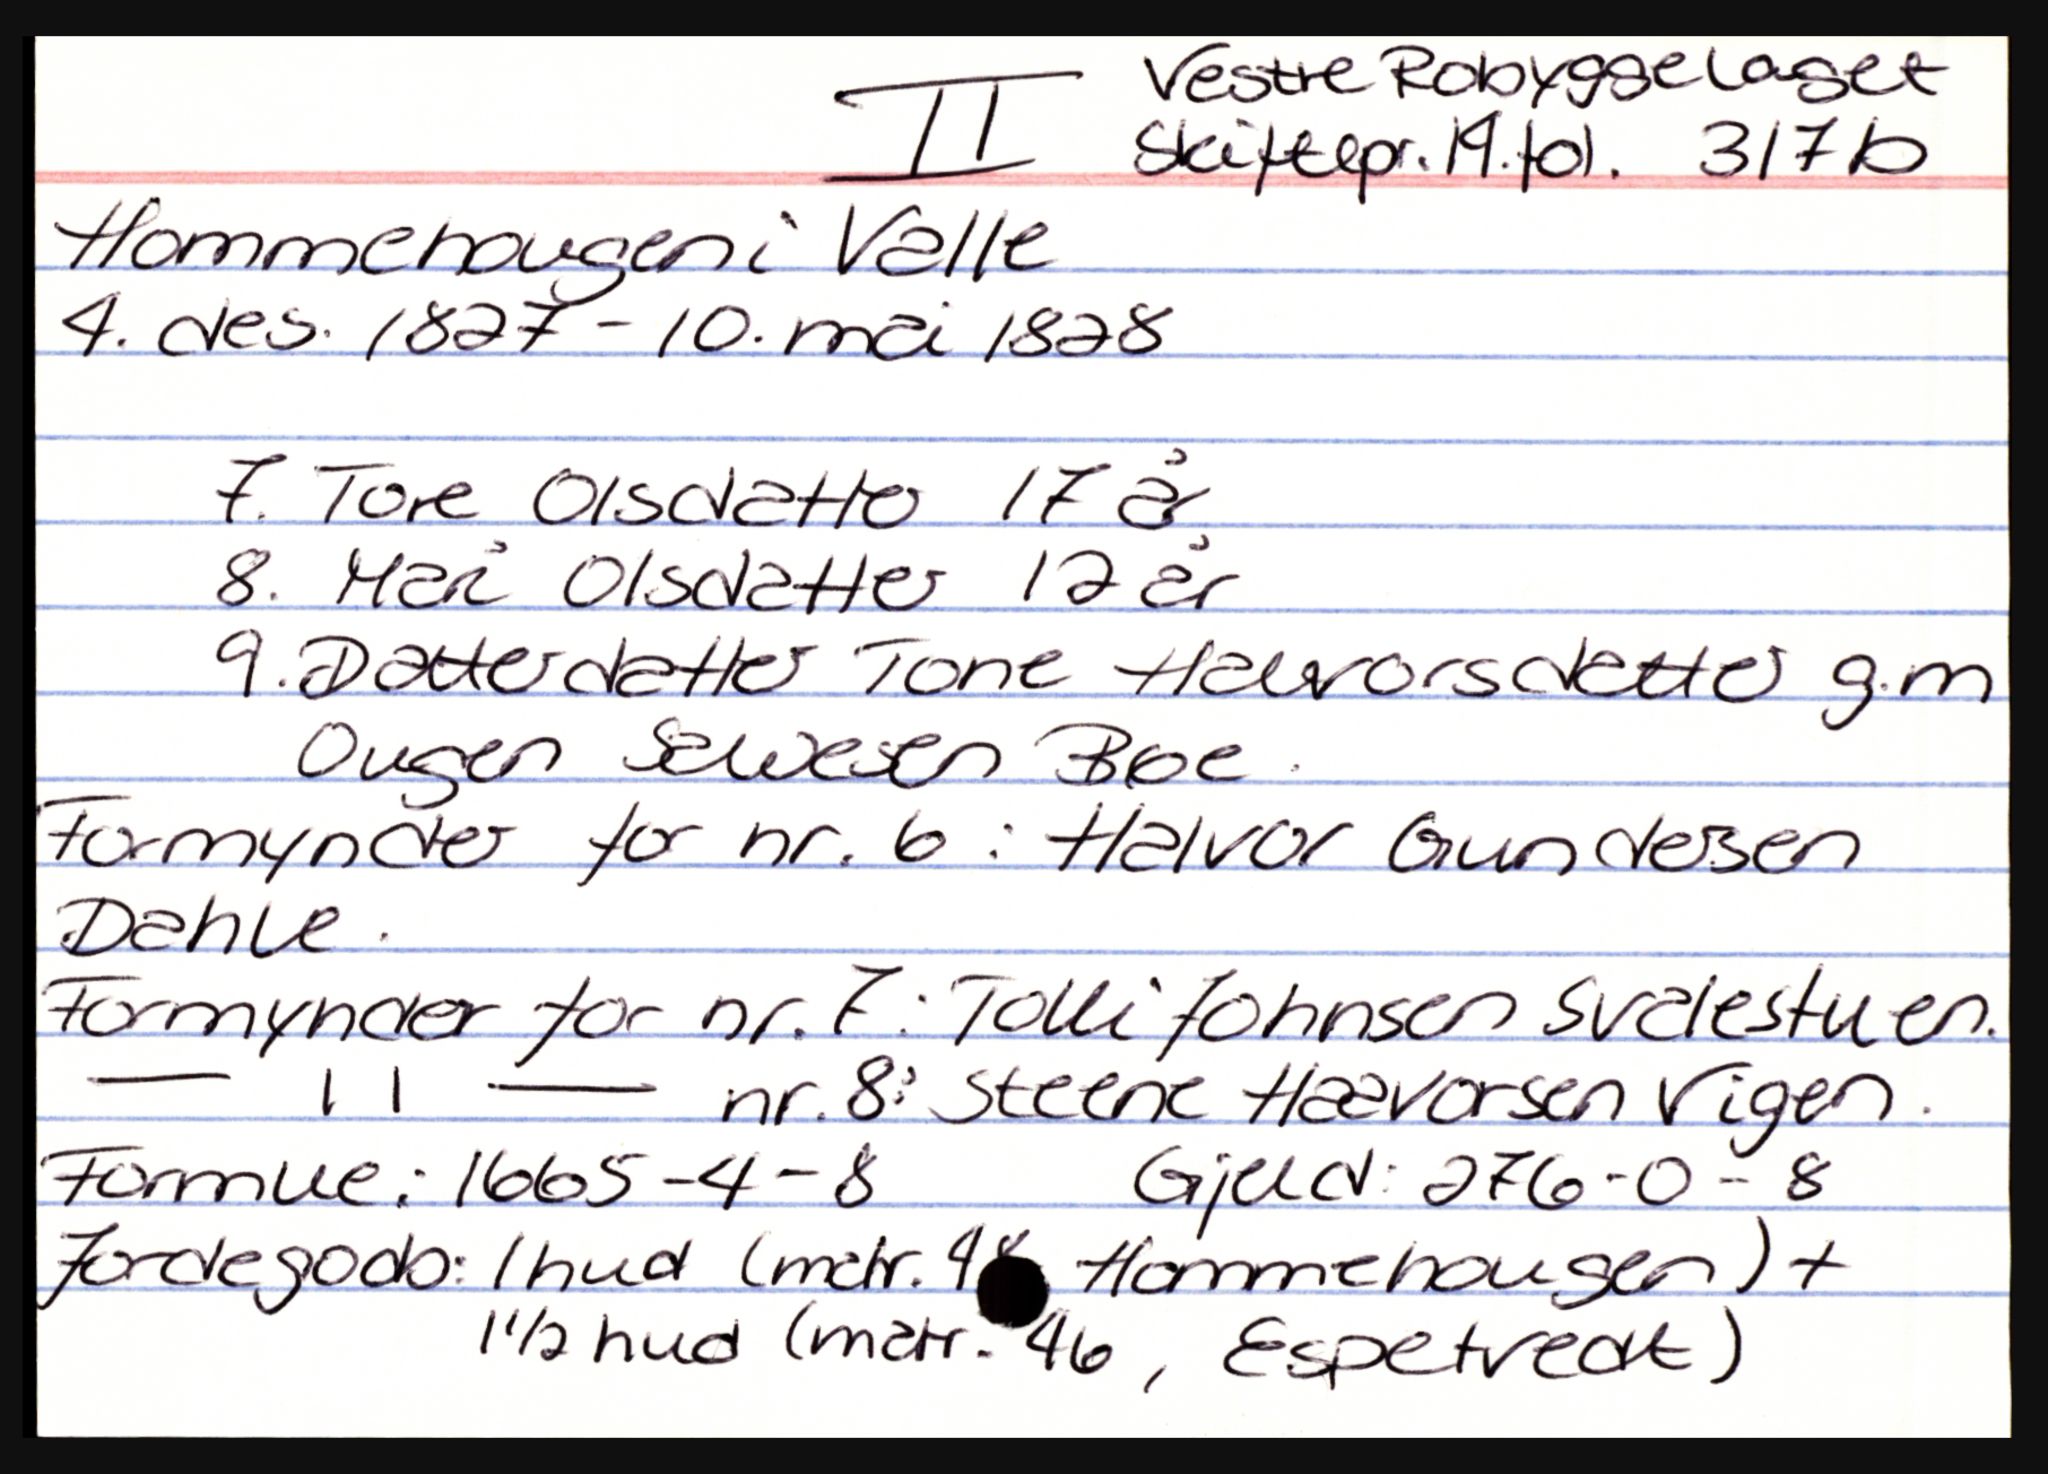 II
Vestre Robyggelaget
Skiftepr. 14. fol. 317b
Hommehougen i Valle
4. des. 1827 - 10. mai 1828
7. Tore Olsdatter 17 år
8. Mari Olsdatter 12 år
9. Datterdatter Tone Halvorsdatter g.m
Ougen Salvesen Bøe.
Formynder for nr. 6: Halvor Gundersen
Dahle.
Formynder for nr. 7: Tolli Johnsen Svalestuen.
— 11 — nr. 8: Steene Haavorsen Vigen.
Formue: 1665-4-8 Gjeld: 276-0-8
Jordegods: 1 hud (matr. Hommehougen) +
1 1/2 hud (matr. 46, Espetvedt)